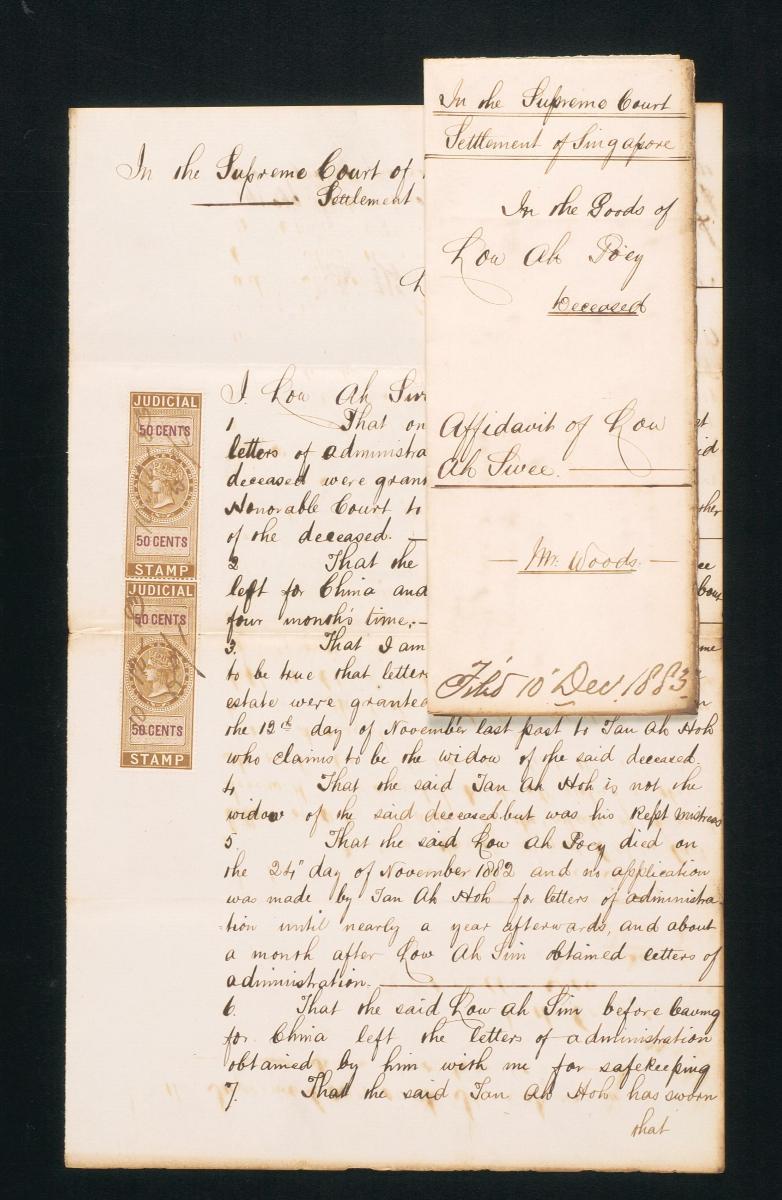 In the Supreme Court
Settlement of Singapore
In the Goods of
Low Ah Poey
Deceased
Affidavit of Low
Ah Swee.
Mr. Woods.
Fil'd 10 Dec. 1883
In the Supreme Court of
Settlement
I. Low Ah Swe
1 That on
letters of administra
deceased were gran
Honorable Court to
of the deceased.
2 That the
left for China and
four month's time.
3. That I am
to be true that letter
estate were granted
the 12th day of November last past to Tan Ah Hoh
who claims to be the widow of the said deceased.
4 That the said Tan Ah Hoh is not the
widow of the said deceased but was his kept mistress
5. That the said Low Ah Poey died on
the 24" day of November 1882 and no application
was made by Tan Ah Hoh for letters of administra-
-tion until nearly a year afterwards, and about
a month after Low Ah Sim obtained letters of
administration.
6. That the said Low Ah Sim before leaving
for China left the letters of administration
obtained by him with me for safekeeping
7. That the said Tan Ah Hoh has sworn
that
JUDICIAL
50 CENTS
50 CENTS
STAMP
JUDICIAL
50 CENTS
50 CENTS
STAMP